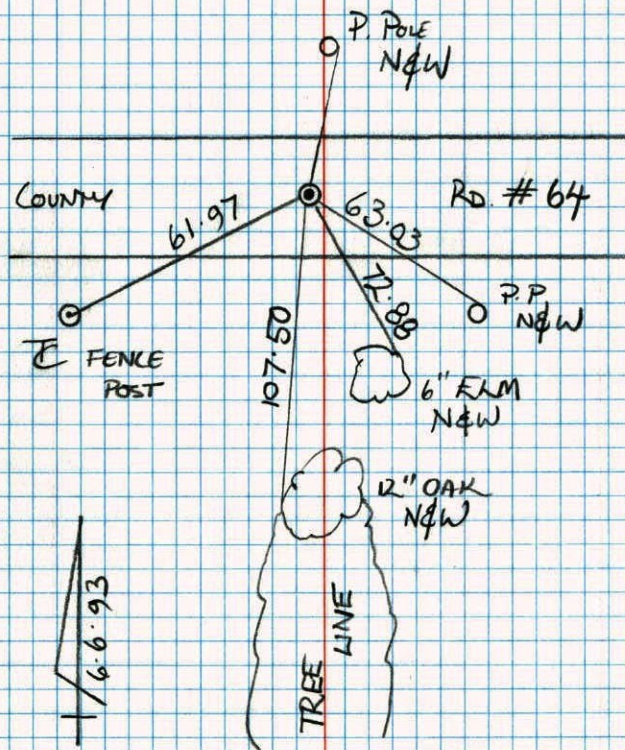 P. POLE
N&W
COUNTY
RD. # 64
61.97
63.03
72.88
107.50
P.P.
N&W
TC FENCE
POST
6" ELM
N&W
12" OAK
N&W
6.6.93
TREE
LINE